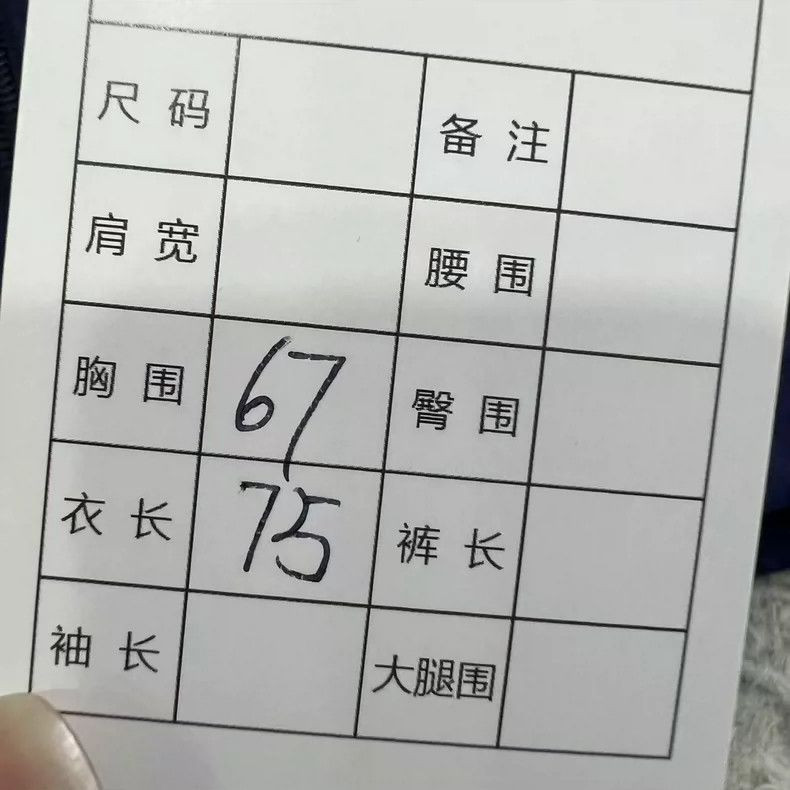 尺码 备注
肩宽 腰围
胸围 67 臀围
衣长 75 裤长
袖长 大腿围